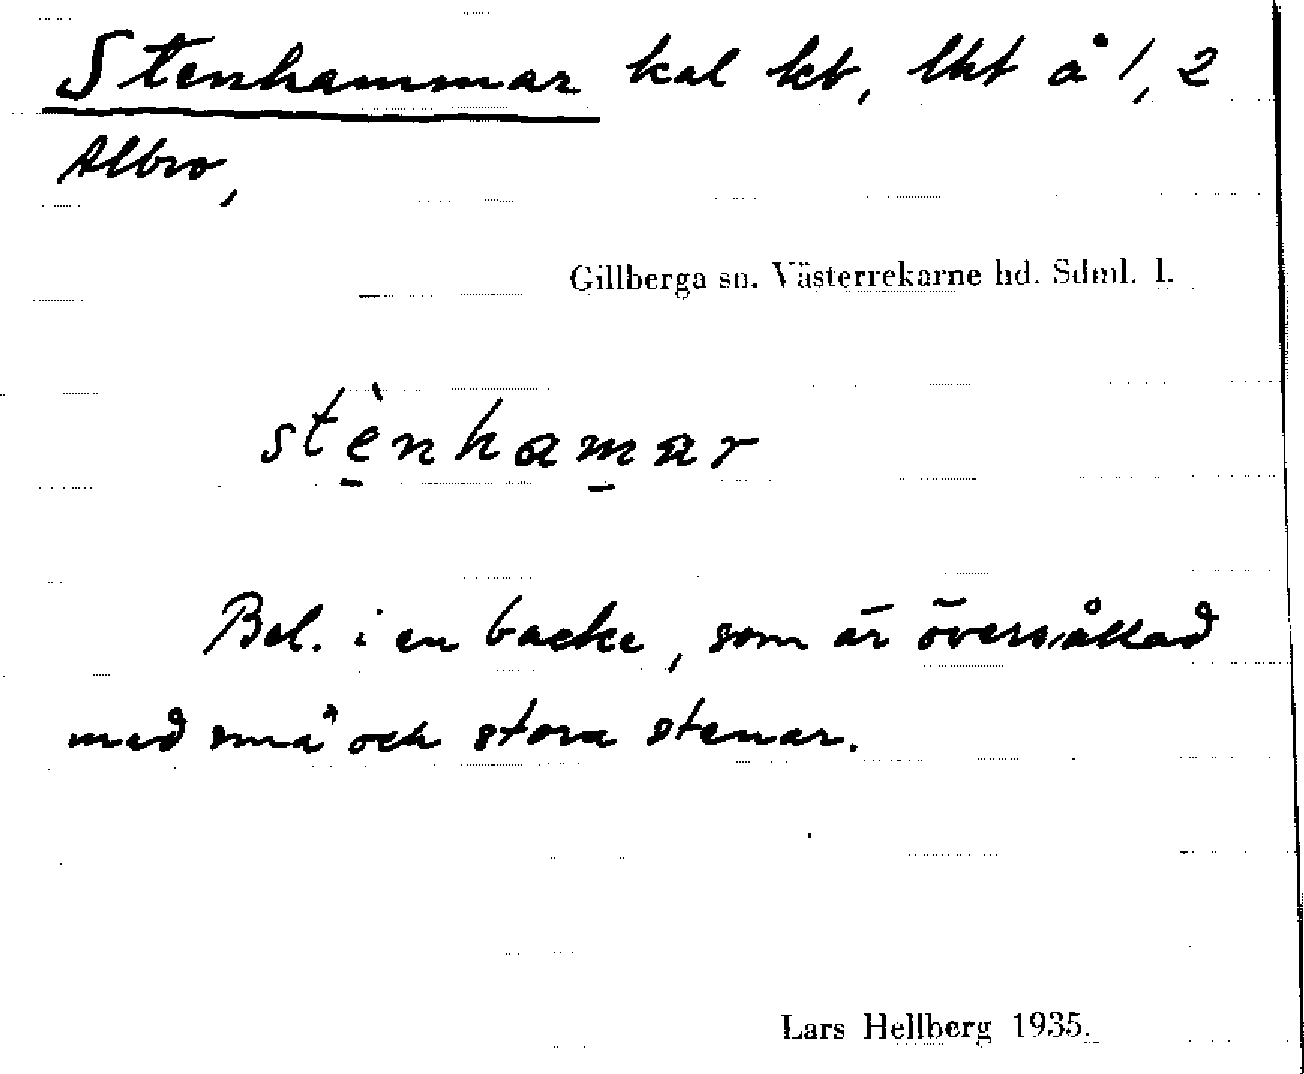 Stenhammar kal kb, lht å 1, 2
Albro,
Gillberga sn. Västerrekarne hd. Sdml. l.
stènhamar
Bel. i en backe, som är översållad
med små och stora stenar.
Lars Hellberg 1935.